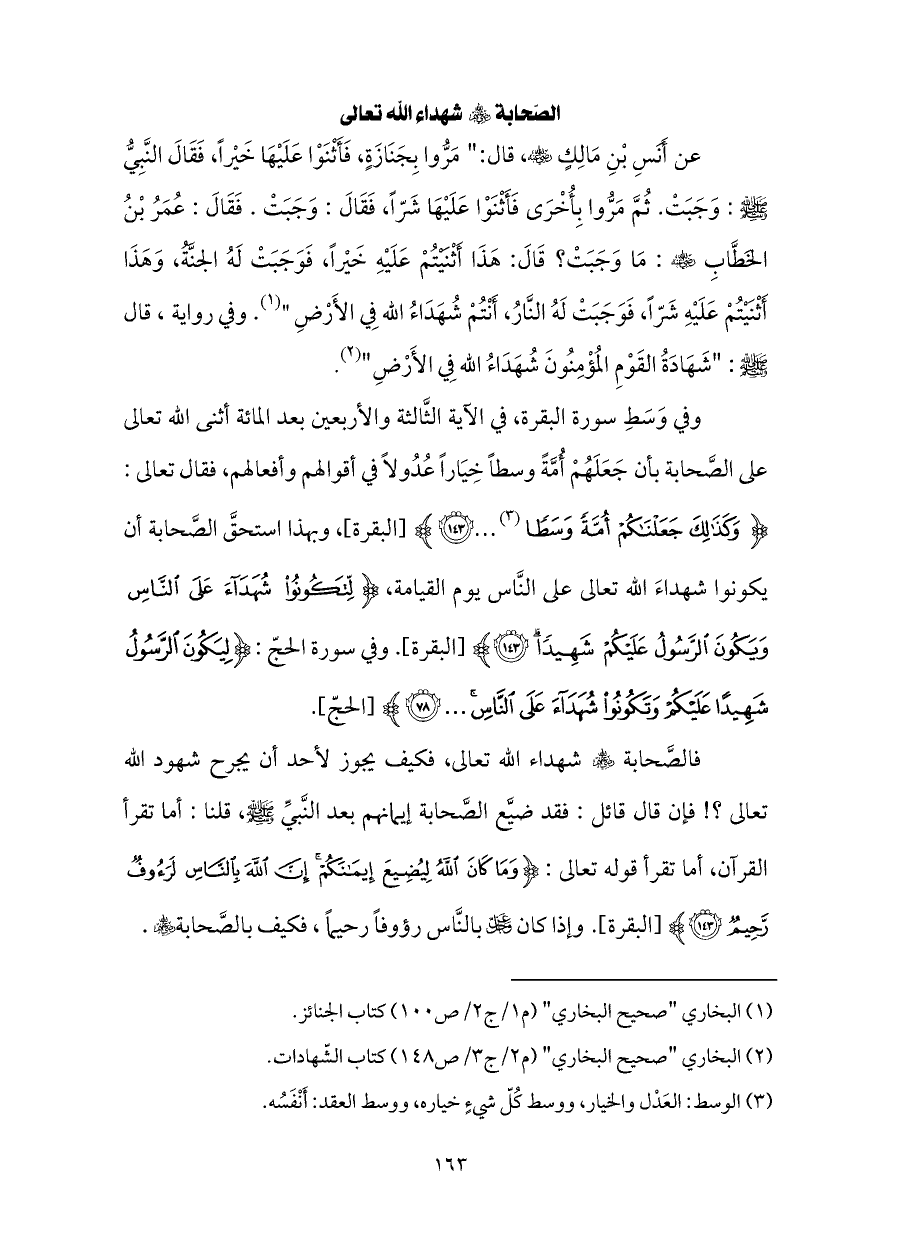 الصّحابة ﷺ شهداء الله تعالى
عن أَنَسِ بْنِ مَالِكٍ ﵁، قال:" مَرُّوا بِجَنَازَةٍ، فَأَثْنَوْا عَلَيْهَا خَيْراً، فَقَالَ النَّبِيُّ
ﷺ : وَجَبَتْ. ثُمَّ مَرُّوا بِأُخْرَى فَأَثْنَوْا عَلَيْهَا شَرّاً، فَقَالَ : وَجَبَتْ . فَقَالَ : عُمَرُ بْنُ
الخَطَّابِ ﵁ : مَا وَجَبَتْ؟ قَالَ: هَذَا أَثْنَيْتُمْ عَلَيْهِ خَيْراً، فَوَجَبَتْ لَهُ الجنَّةُ، وَهَذَا
أَثْنَيْتُمْ عَلَيْهِ شَرّاً، فَوَجَبَتْ لَهُ النَّارُ، أَنْتُمْ شُهَدَاءُ الله فِي الأَرْضِ "(١). وفي رواية ، قال
ﷺ : "شَهَادَةُ القَوْمِ المُؤْمِنُونَ شُهَدَاءُ الله فِي الأَرْضِ"(٢).
وفي وَسَطِ سورة البقرة، في الآية الثَّالثة والأربعين بعد المائة أثنى الله تعالى
على الصَّحابة بأن جَعَلَهُمْ أُمَّةً وسطاً خِيَاراً عُدُولاً في أقوالهم وأفعالهم، فقال تعالى :
﴿ وَكَذَٰلِكَ جَعَلْنَٰكُمْ أُمَّةً وَسَطًا (٣) ... ١٤٣ ﴾ [البقرة]، وبهذا استحقَّ الصَّحابة أن
يكونوا شهداءَ الله تعالى على النَّاس يوم القيامة، ﴿ لِّتَكُونُوا۟ شُهَدَآءَ عَلَى ٱلنَّاسِ
وَيَكُونَ ٱلرَّسُولُ عَلَيْكُمْ شَهِيدًا ۗ ١٤٣ ﴾ [البقرة]. وفي سورة الحجّ : ﴿ لِيَكُونَ ٱلرَّسُولُ
شَهِيدًا عَلَيْكُمْ وَتَكُونُوا۟ شُهَدَآءَ عَلَى ٱلنَّاسِ ۚ ... ٧٨ ﴾ [الحجّ].
فالصَّحابة ﵃ شهداء الله تعالى، فكيف يجوز لأحد أن يجرح شهود الله
تعالى ؟! فإن قال قائل : فقد ضيَّع الصَّحابة إيمانهم بعد النَّبيِّ ﷺ، قلنا : أما تقرأ
القرآن، أما تقرأ قوله تعالى : ﴿ وَمَا كَانَ ٱللَّهُ لِيُضِيعَ إِيمَٰنَكُمْ ۚ إِنَّ ٱللَّهَ بِٱلنَّاسِ لَرَءُوفٌ
رَّحِيمٌ ١٤٣ ﴾ [البقرة]. وإذا كان ﷻ بالنَّاس رؤوفاً رحيماً ، فكيف بالصَّحابة ﵃ .
(١) البخاري "صحيح البخاري" (م١/ ج٢/ ص١٠٠) كتاب الجنائز.
(٢) البخاري "صحيح البخاري" (م٢/ ج٣/ ص١٤٨) كتاب الشّهادات.
(٣) الوسط: العَدْل والخيار، ووسط كُلّ شيءٍ خياره، ووسط العقد: أَنْفَسُه.
١٦٣